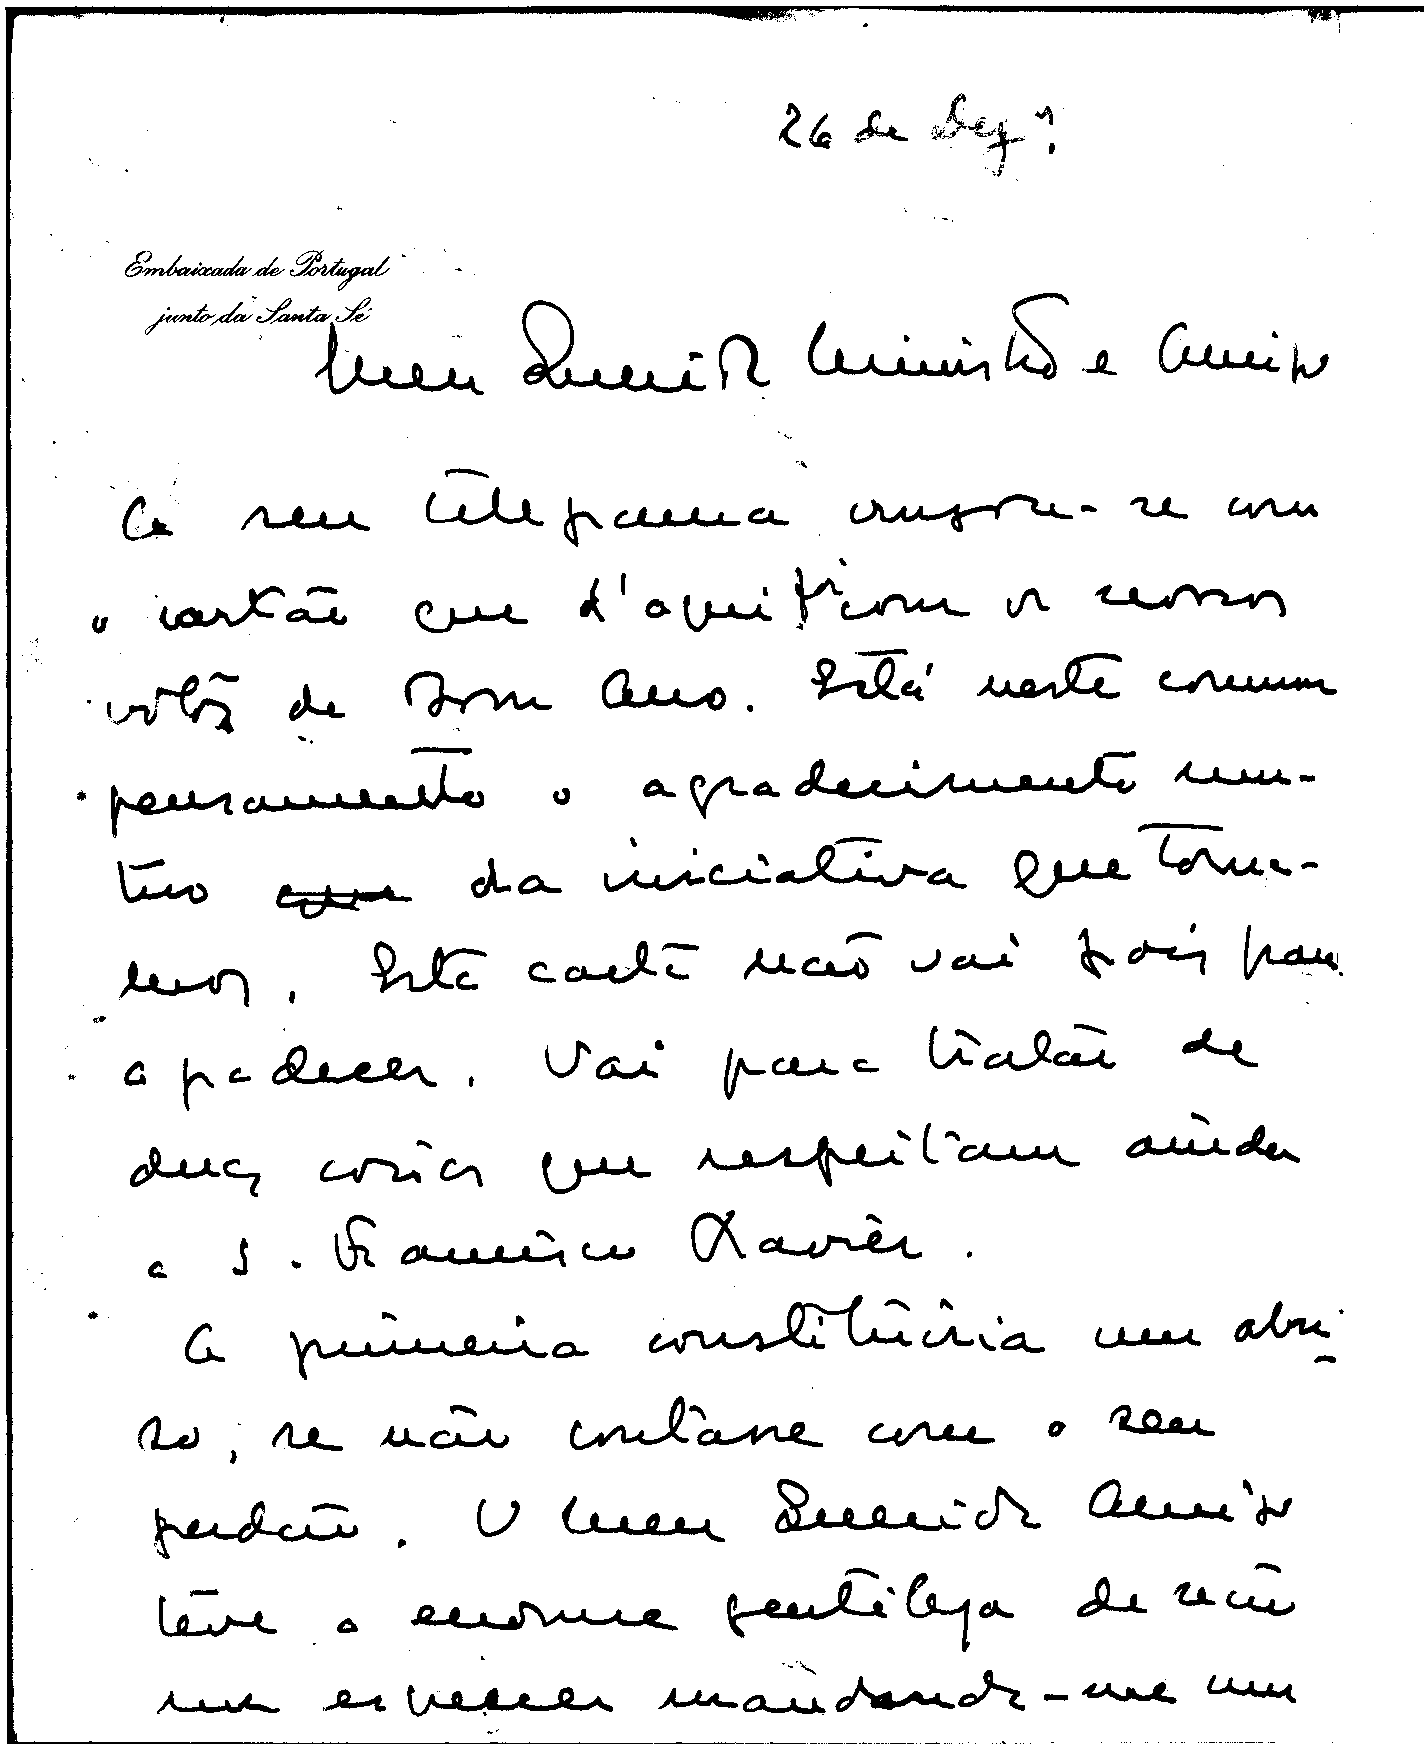 26 de Dezº.
Embaixada de Portugal
junto da Santa Sé
Meu Querido Ministro e Amigo
O seu telegrama cruzou-se com
o cartão que d'aqui com os nossos
votos de Bom Ano. Está neste comum
pensamento o agradecimento mu-
tuo da iniciativa que toma-
mos. Esta carta não vai pois para
agradecer. Vai para tratar de
duas coisas que respeitam ainda
a S. Francisco Xavier.
A primeira constituiria um abu-
so, se não contasse com o seu
perdão. O meu Querido Amigo
teve a enorme gentileza de não
me esquecer mandando-me um